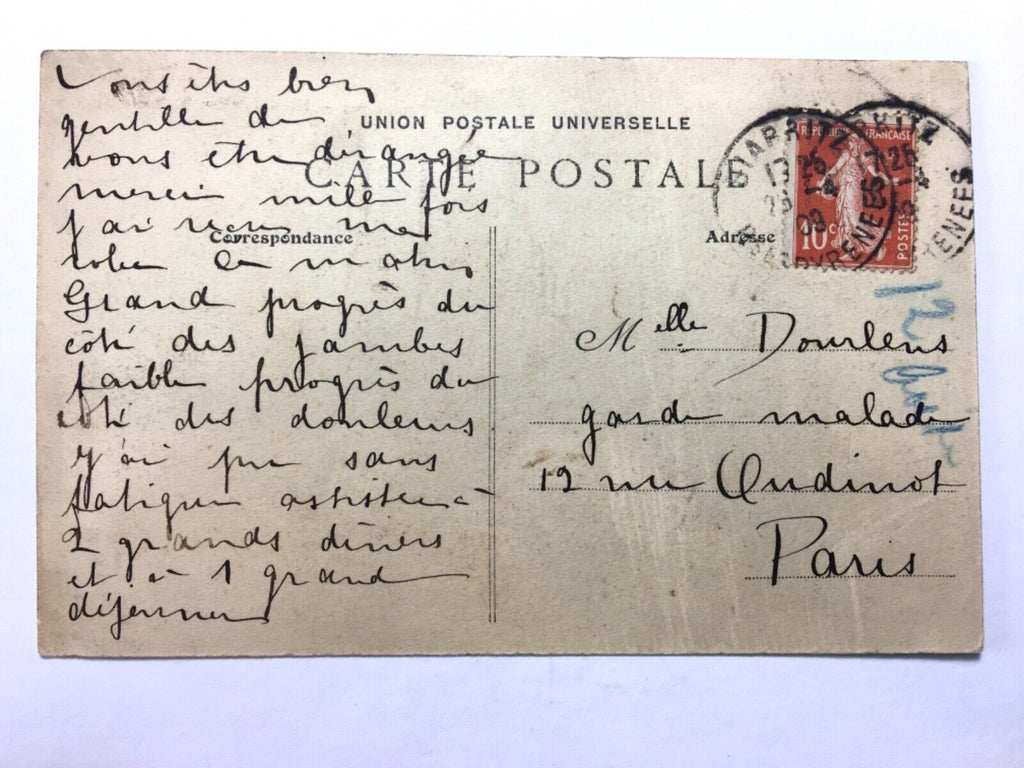 Vous êtes bien
gentille de
vous être dérangée
merci mille fois
j'ai reçu ma
robe ce matin
Grand progrès du
côté des jambes
faible progrès du
côté des douleurs
j'ai pu sans
fatigue assister à
2 grands dîners
et à 1 grand
déjeuner
UNION POSTALE UNIVERSELLE
CARTE POSTALE
Correspondance
Adresse
REPUBLIQUE FRANÇAISE
10 c
POSTES
BIARRITZ
17 25
-4
09
PYRENEES
Melle Dourlens
garde malade
12 rue Oudinot
Paris
12 Août